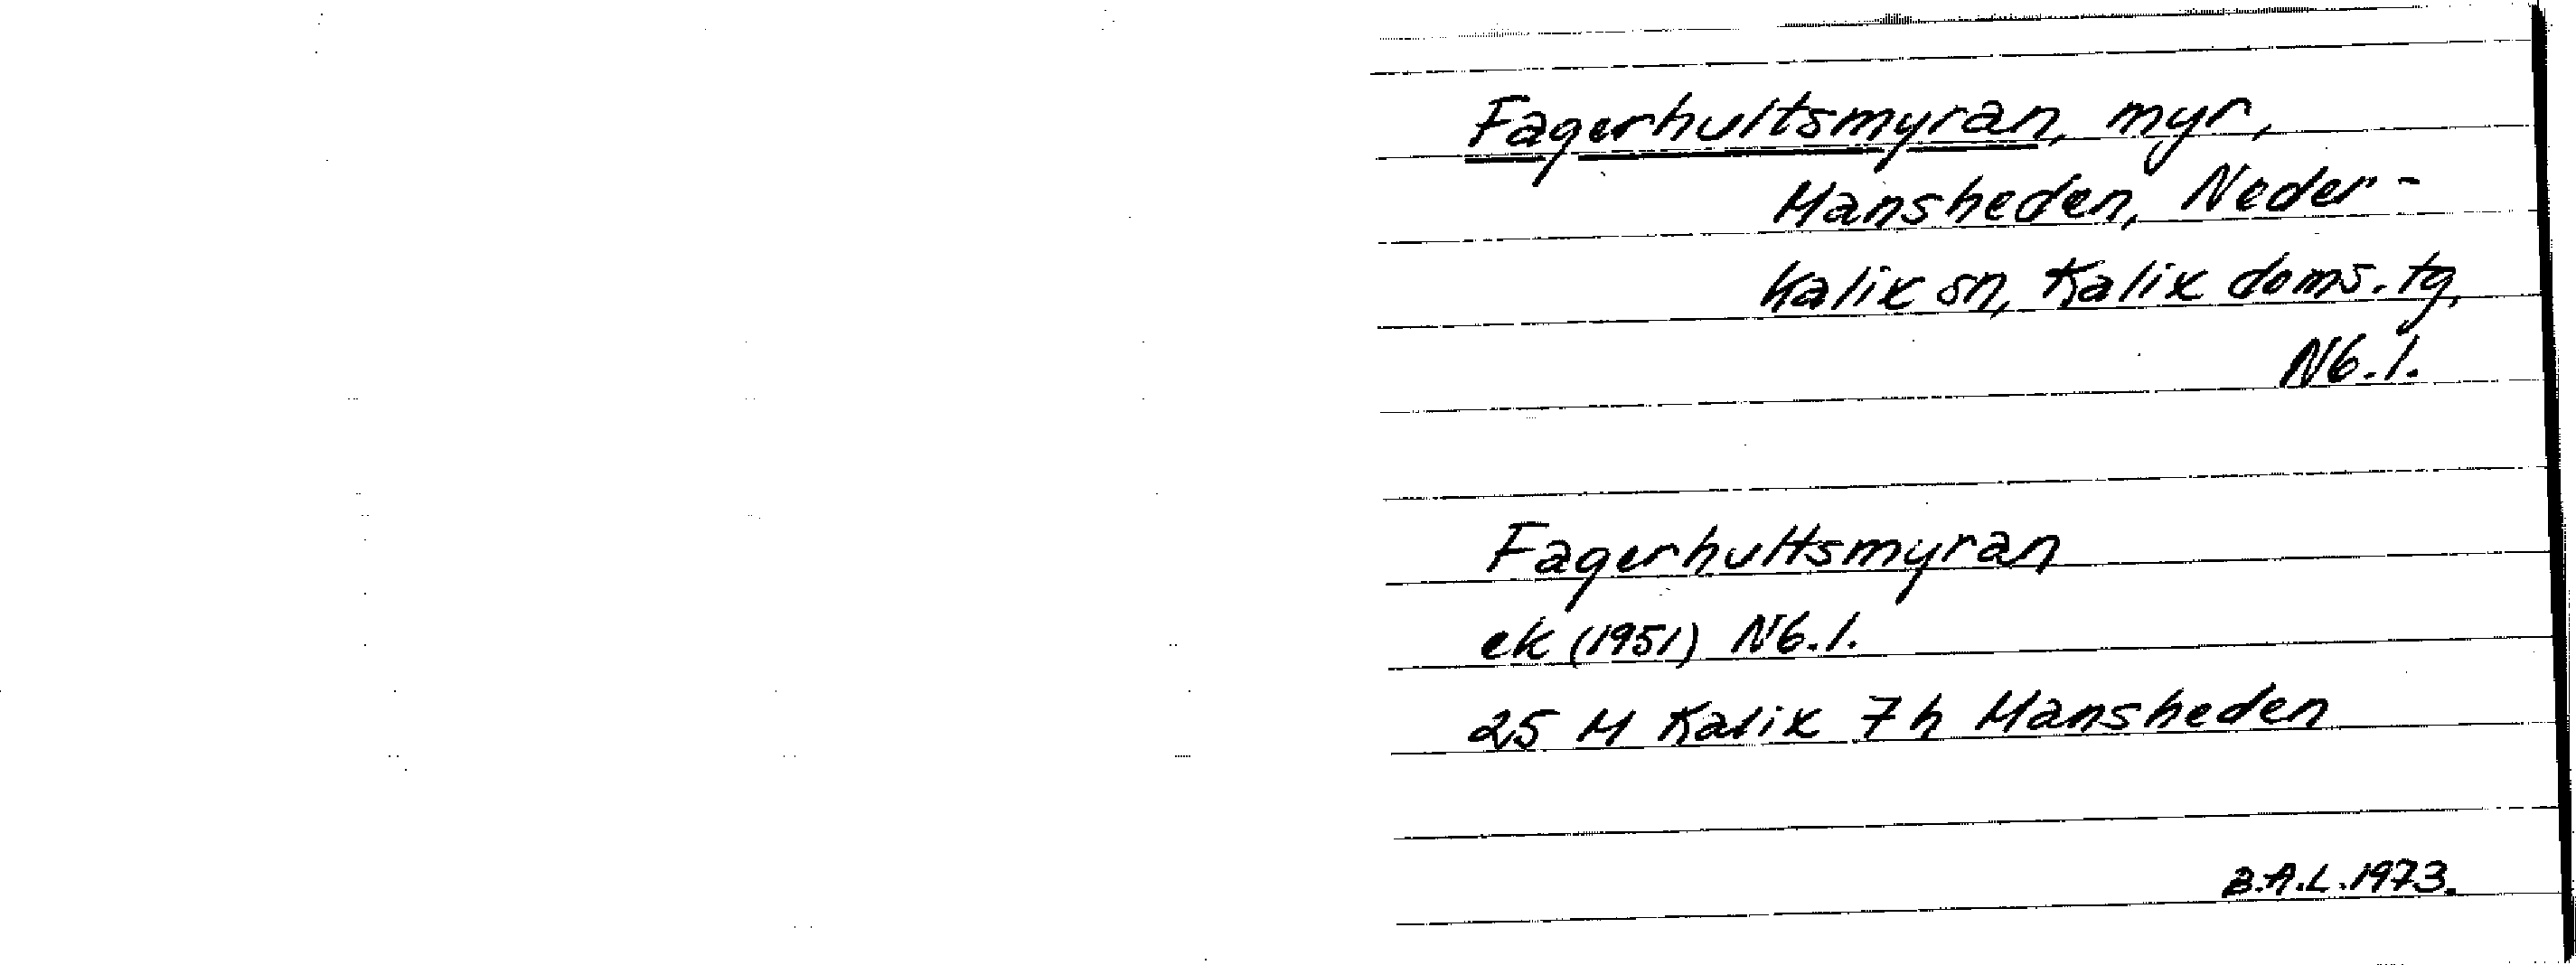 Fagerhultsmyran, myr,
Mansheden, Neder-
kalix sn, Kalix doms. tg,
Nb. l.
Fagerhultsmyran
ek (1951) Nb. l.
25 M Kalix 7h Mansheden
B.A.L. 1973.